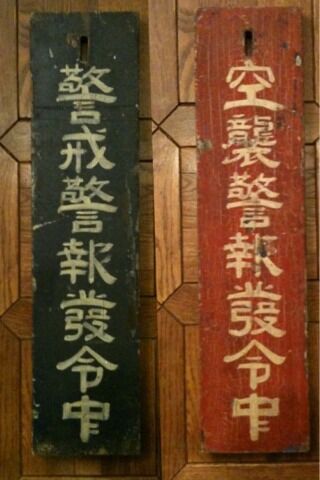 警戒警報發令中
空襲警報發令中